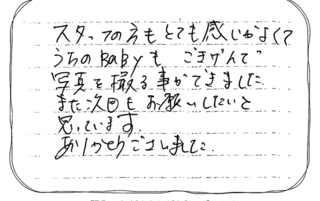 スタッフの方もとても感じがよくて
うちのBabyも ごきげんで
写真を撮る事ができました
また次回も お願いしたいと
思っています
ありがとうございました.